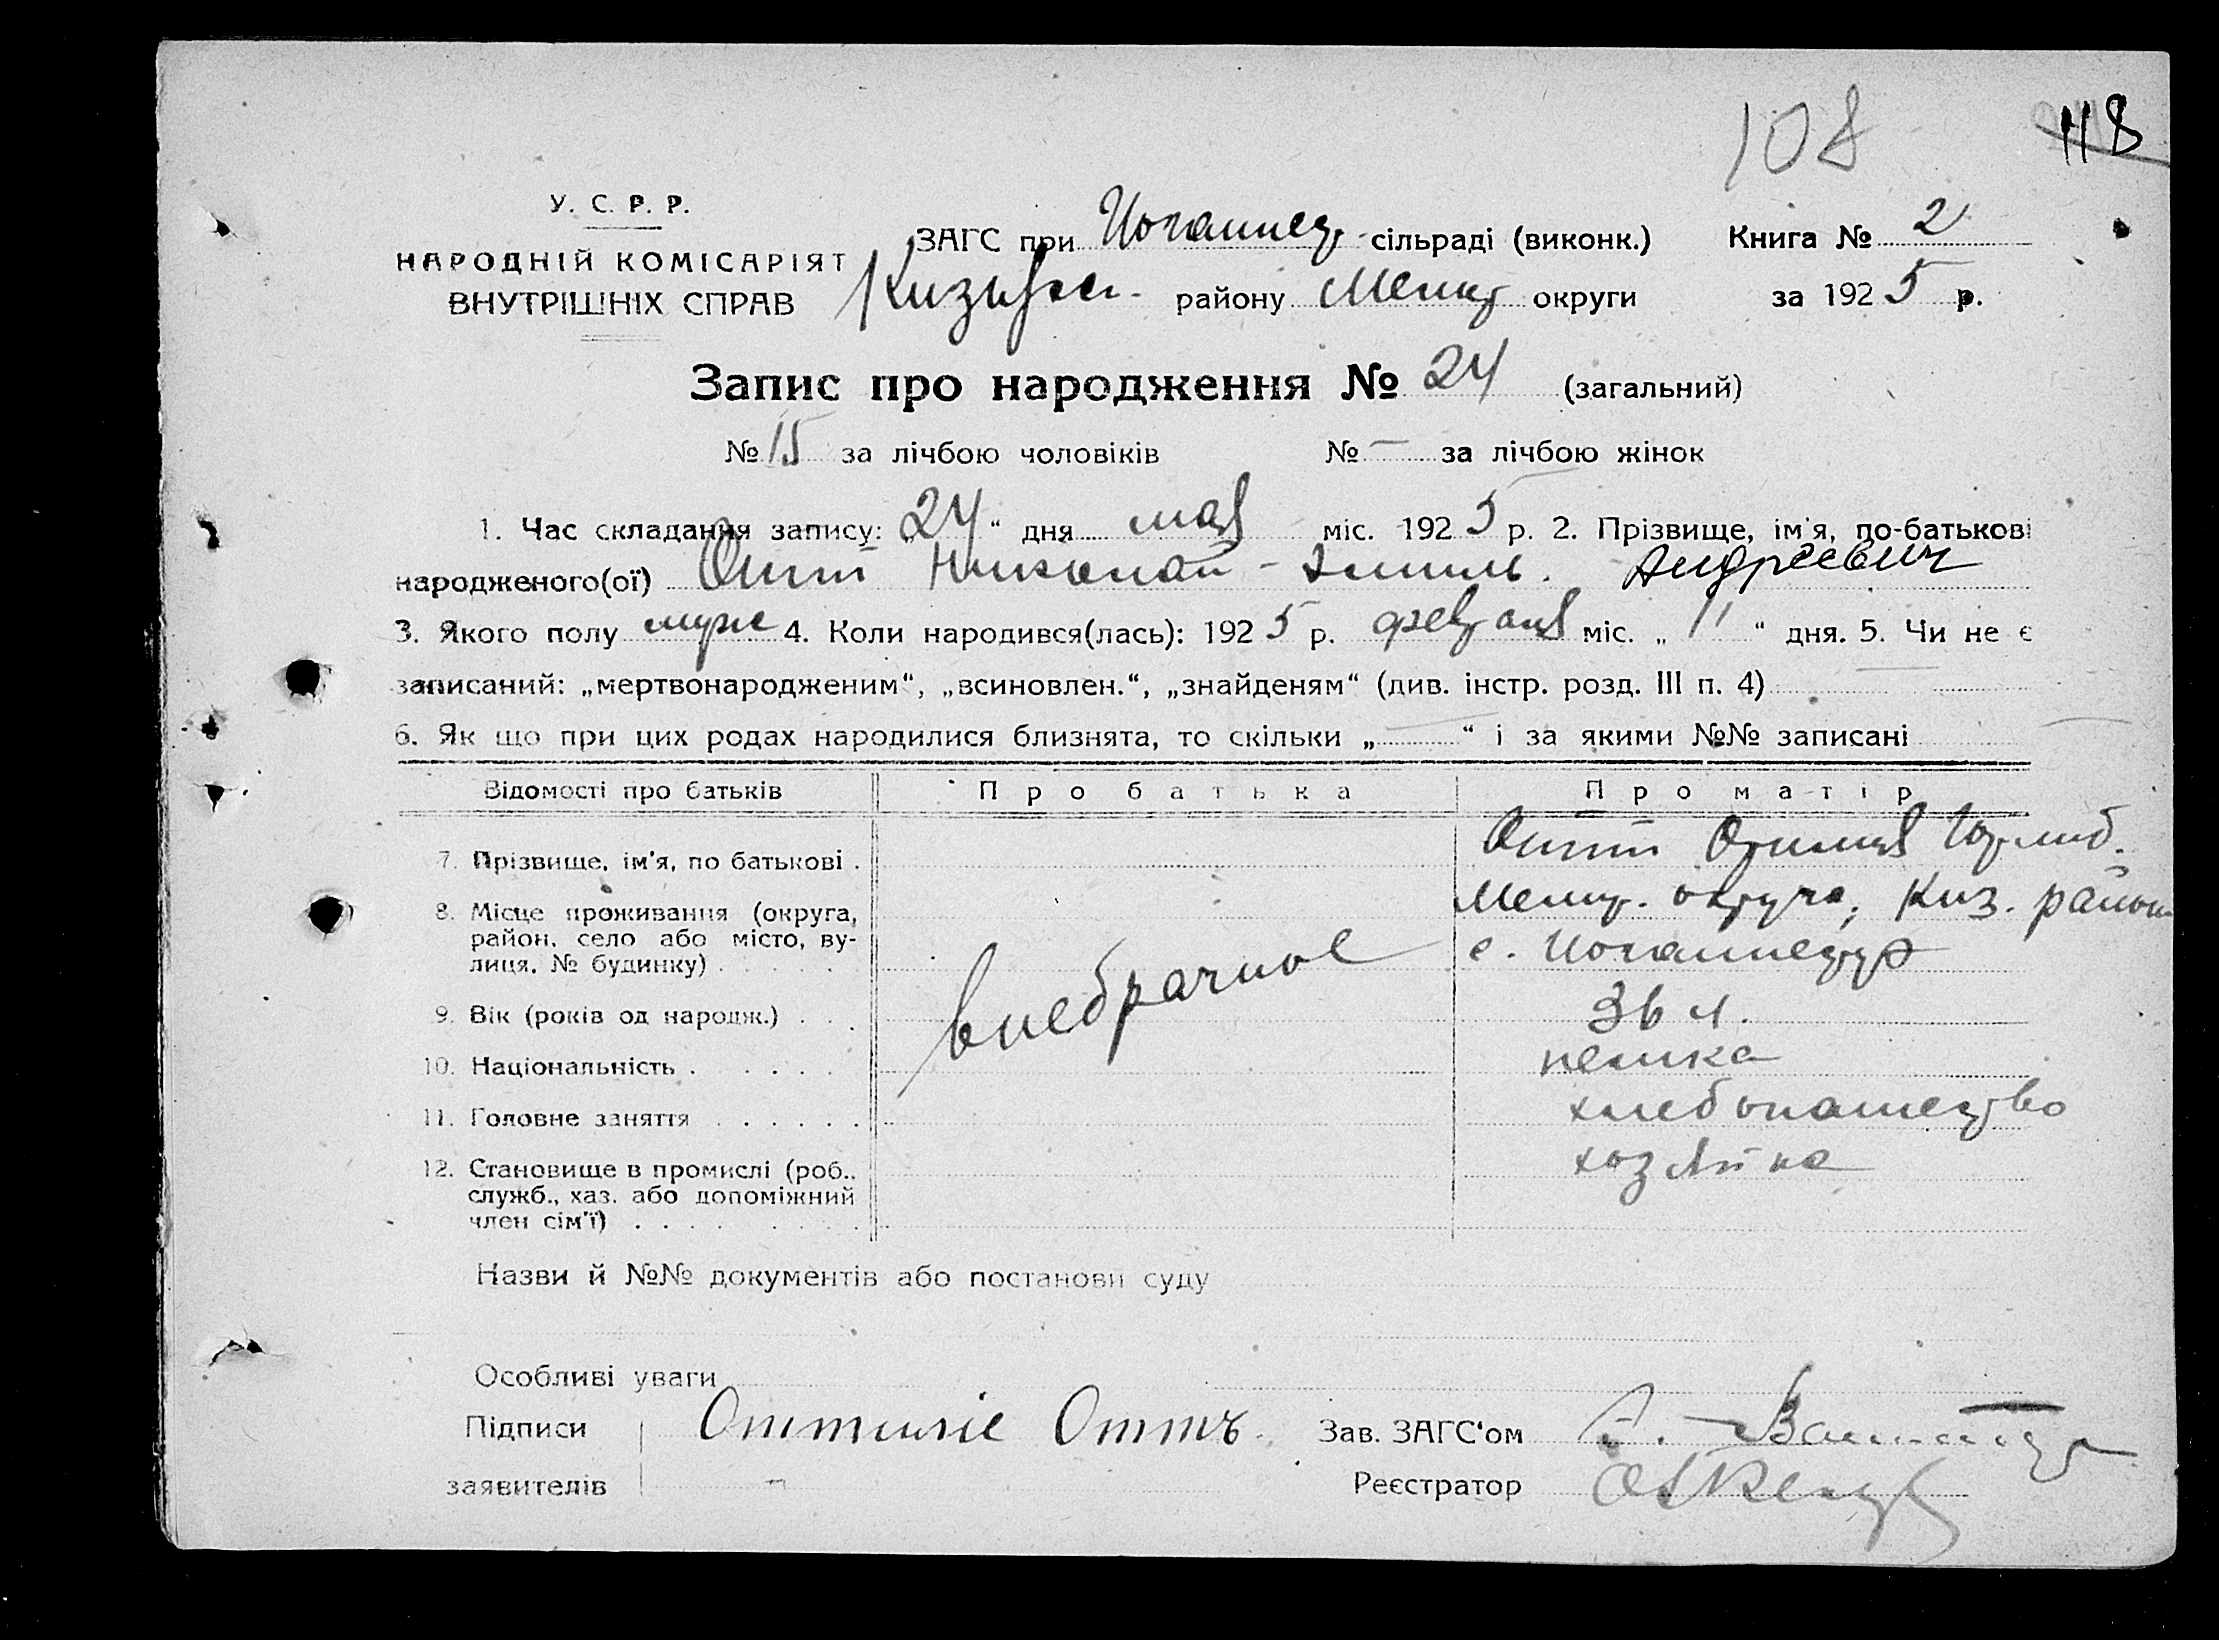 108 118
У. С. Р. Р.
НАРОДНІЙ КОМІСАРІЯТ
ВНУТРІШНІХ СПРАВ
ЗАГС при сільраді (виконк.) Книга № 2
району округи за 1925 р.
Запис про народження № 24 (загальний)
№ 15 за лічбою чоловіків № — за лічбою жінок
1. Час складання запису: „24“ дня мая міс. 1925 р. 2. Прізвище, ім'я, по-батькові
народженого(ої) Отт Николай - Эмиль. Андреевич
3. Якого полу муж 4. Коли народився(лась): 1925 р. февраля міс. „11“ дня. 5. Чи не є
записаний: „мертвонародженим“, „всиновлен.“, „знайденям“ (див. інстр. розд. III п. 4)
6. Як що при цих родах народилися близнята, то скільки „—“ і за якими №№ записані
Відомості про батьків Про батька Про матір
7. Прізвище, ім'я, по батькові . Отт Отилия Готлиб.
8. Місце проживання (округа, район, село або місто, вулиця, № будинку) . . . . Мелит. округа, Киз. район
с.
внебрачное
9. Вік (років од народж.) . . . 36 л.
10. Національність . . . . . немка
11. Головне заняття . . . . . . хлебопашество
12. Становище в промислі (роб., служб., хаз. або допоміжний член сім'ї) . . . . . . . . хозяйка
Назви й №№ документів або постанови суду
Особливі уваги
Підписи Оттиліе Оттъ Зав. ЗАГС'ом
заявителів Реєстратор